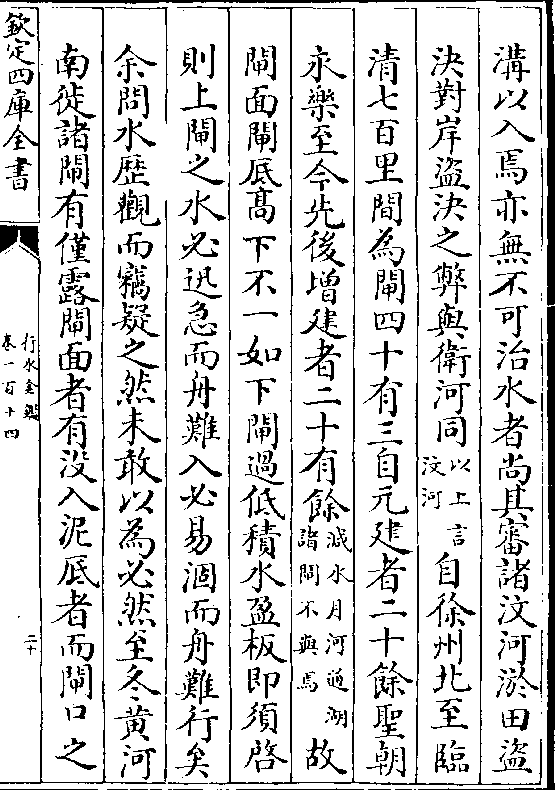 溝以入焉亦無不可治水者尚其審諸汶河淤田盜
決對岸盜決之弊與衛河同以上言汶河自徐州北至臨
清七百里間為閘四十有三自元建者二十餘聖朝
永樂至今先後增建者二十有餘減水月河通湖諸閘不與焉故
閘面閘底髙下不一如下閘過低積水盈板即須啓
則上閘之水必迅急而舟難入必易涸而舟難行矣
余問水歴觀而竊疑之然未敢以為必然至冬黄河
南徙諸閘有僅露閘面者有没入泥底者而閘口之
欽定四庫全書
行水金鑑
卷一百十四
二十